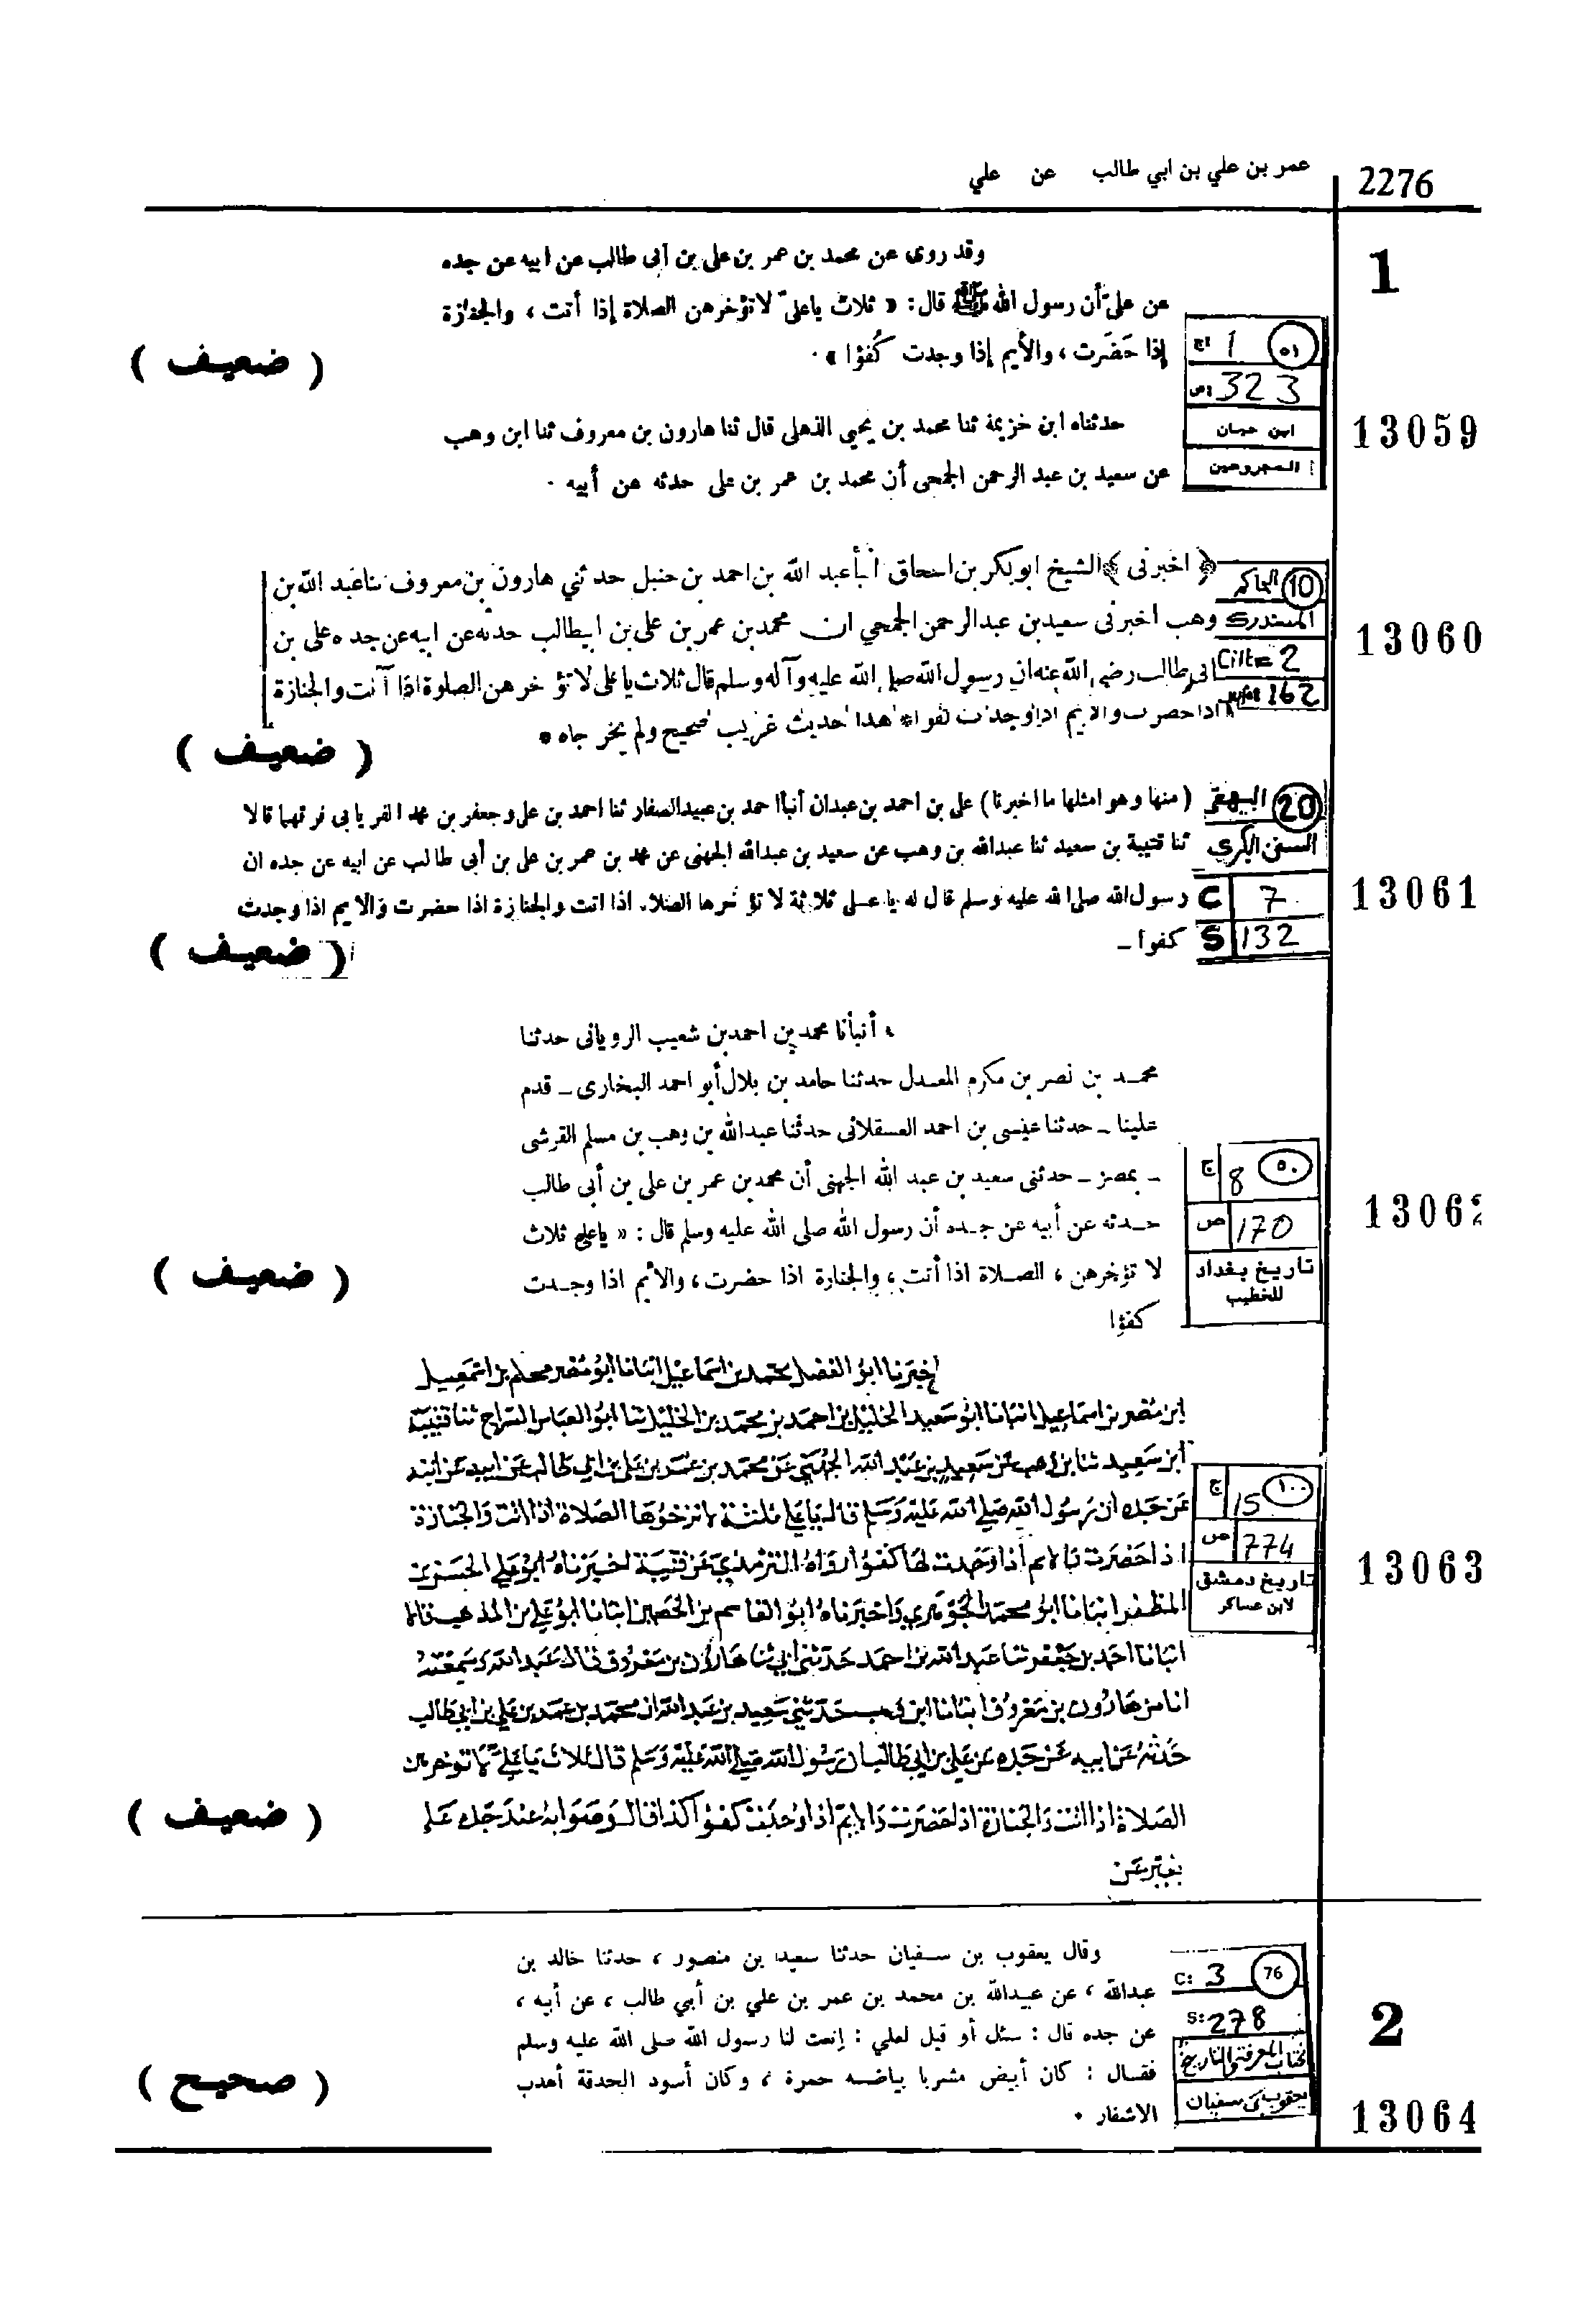 2276
عمر بن علي بن ابي طالب عن علي
1
وقد روى عن محمد بن عمر بن على بن أبى طالب عن أبيه عن جده
عن علىّ أن رسول الله ﷺ قال : « ثلاث ياعلىّ لا تؤخرهن الصلاة إذا أتت ، والجنازة
إذا حَضَرت ، والأيم إذا وجدت كُفؤا » .
( ضعيف )
حدثناه ابن خزيمة ثنا محمد بن يحيى الذهلى قال ثنا هارون بن معروف ثنا ابن وهب
عن سعيد بن عبد الرحمن الجمحى أن محمد بن عمر بن على حدثه عن أبيه .
٥١ ج 1
ص 323
ابن حبان
المجروحين
13059
﴿ اخبرنى ﴾ الشيخ ابوبكر بن اسحاق انبأ عبد الله بن احمد بن حنبل حدثني هارون بن معروف ثنا عبد الله بن
وهب اخبرنى سعيد بن عبد الرحمن الجمحي ان محمد بن عمر بن على بن ابيطالب حدثه عن ابيه عن جده على بن
ابى طالب رضى الله عنه ان رسول الله صلى الله عليه وآله وسلم قال ثلاث يا على لا تؤخرهن الصلوة اذا آنت والجنازة
اذا حضرت والايم اذا وجدت كفوا * هذا حديث غريب صحيح ولم يخرجاه *
( ضعيف )
10 الحاكم
المستدرك
Cilt= 2
162
13060
( منها وهو امثلها ما اخبرنا ) على بن احمد بن عبدان أنبأ احمد بن عبيد الصفار ثنا احمد بن على وجعفر بن محمد الفريابى فرقهما قالا
ثنا قتيبة بن سعيد ثنا عبدالله بن وهب عن سعيد بن عبدالله الجهنى عن محمد بن عمر بن على بن أبى طالب عن ابيه عن جده ان
رسول الله صلى الله عليه وسلم قال له يا على ثلاثة لا تؤخرها الصلاة اذا اتت والجنازة اذا حضرت والايم اذا وجدت
كفوا –
( ضعيف )
20 البيهقي
السنن الكبرى
C 7
S 132
13061
أنبأنا محمد بن احمد بن شعيب الرويانى حدثنا
محمد بن نصر بن مكرم المعدل حدثنا حامد بن بلال أبو احمد البخارى – قدم
علينا – حدثنا عيسى بن احمد العسقلانى حدثنا عبدالله بن وهب بن مسلم القرشى
– بمصر – حدثنى سعيد بن عبد الله الجهنى أن محمد بن عمر بن على بن أبى طالب
حدثه عن أبيه عن جده أن رسول الله صلى الله عليه وسلم قال : « ياعلى ثلاث
لا تؤخرهن ، الصلاة اذا أتت ، والجنازة اذا حضرت ، والأيم اذا وجدت
كفؤا
( ضعيف )
٥٠ ج 8
ص 170
تاريخ بغداد
للخطيب
13062
اخبرنا ابو الفضل محمد بن اسماعيل انبانا ابو مضر محلم بن اسمعيل
ابن مضر بن اسماعيل انبانا ابو سعيد الخليل بن احمد بن محمد بن الخليل ثنا ابو العباس السراج ثنا قتيبة
ابن سعيد ثنا بن وهب عن سعيد بن عبد الله الجهني عن محمد بن عمر بن علي بن ابي طالب عن ابيه
عن جده ان رسول الله صلى الله عليه وسلم قال يا علي ثلثة لا تؤخرها الصلاة اذا اتت والجنازة
اذا حضرت والايم اذا وجدت لها كفوا رواه الترمذي عن قتيبة اخبرناه ابو علي الحسن بن
المظفر انبانا ابو محمد الجوهري واخبرناه ابو القاسم بن الحصين انبانا ابو علي بن المذهب قالا
انبانا احمد بن جعفر ثنا عبد الله بن احمد حدثني ابي ثنا هارون بن معروف قال عبد الله وسمعته
انا من هارون بن معروف انبانا ابن وهب حدثني سعيد بن عبد الله ان محمد بن عمر بن علي بن ابي طالب
حدثه عن ابيه عن جده عن علي بن ابي طالب ان رسول الله صلى الله عليه وسلم قال ثلاث يا علي لا تؤخرهن
الصلاة اذا اتت والجنازة اذا حضرت والايم اذا وجدت كفؤا كذا قال وصوابه عند جده علي
بغير عن
( ضعيف )
١٠٠ ج 15
ص 774
تاريخ دمشق
لابن عساكر
13063
وقال يعقوب بن سفيان حدثنا سعيد بن منصور ، حدثنا خالد بن
عبدالله ، عن عبيدالله بن محمد بن عمر بن علي بن أبي طالب ، عن أبيه ،
عن جده قال : سئل أو قيل لعلي : إنعت لنا رسول الله صلى الله عليه وسلم
فقال : كان أبيض مشربا بياضه حمرة ، وكان أسود الحدقة أهدب
الاشفار .
( صحيح )
76 C: 3
S: 278
كتاب المعرفة والتاريخ
يعقوب بن سفيان
2
13064